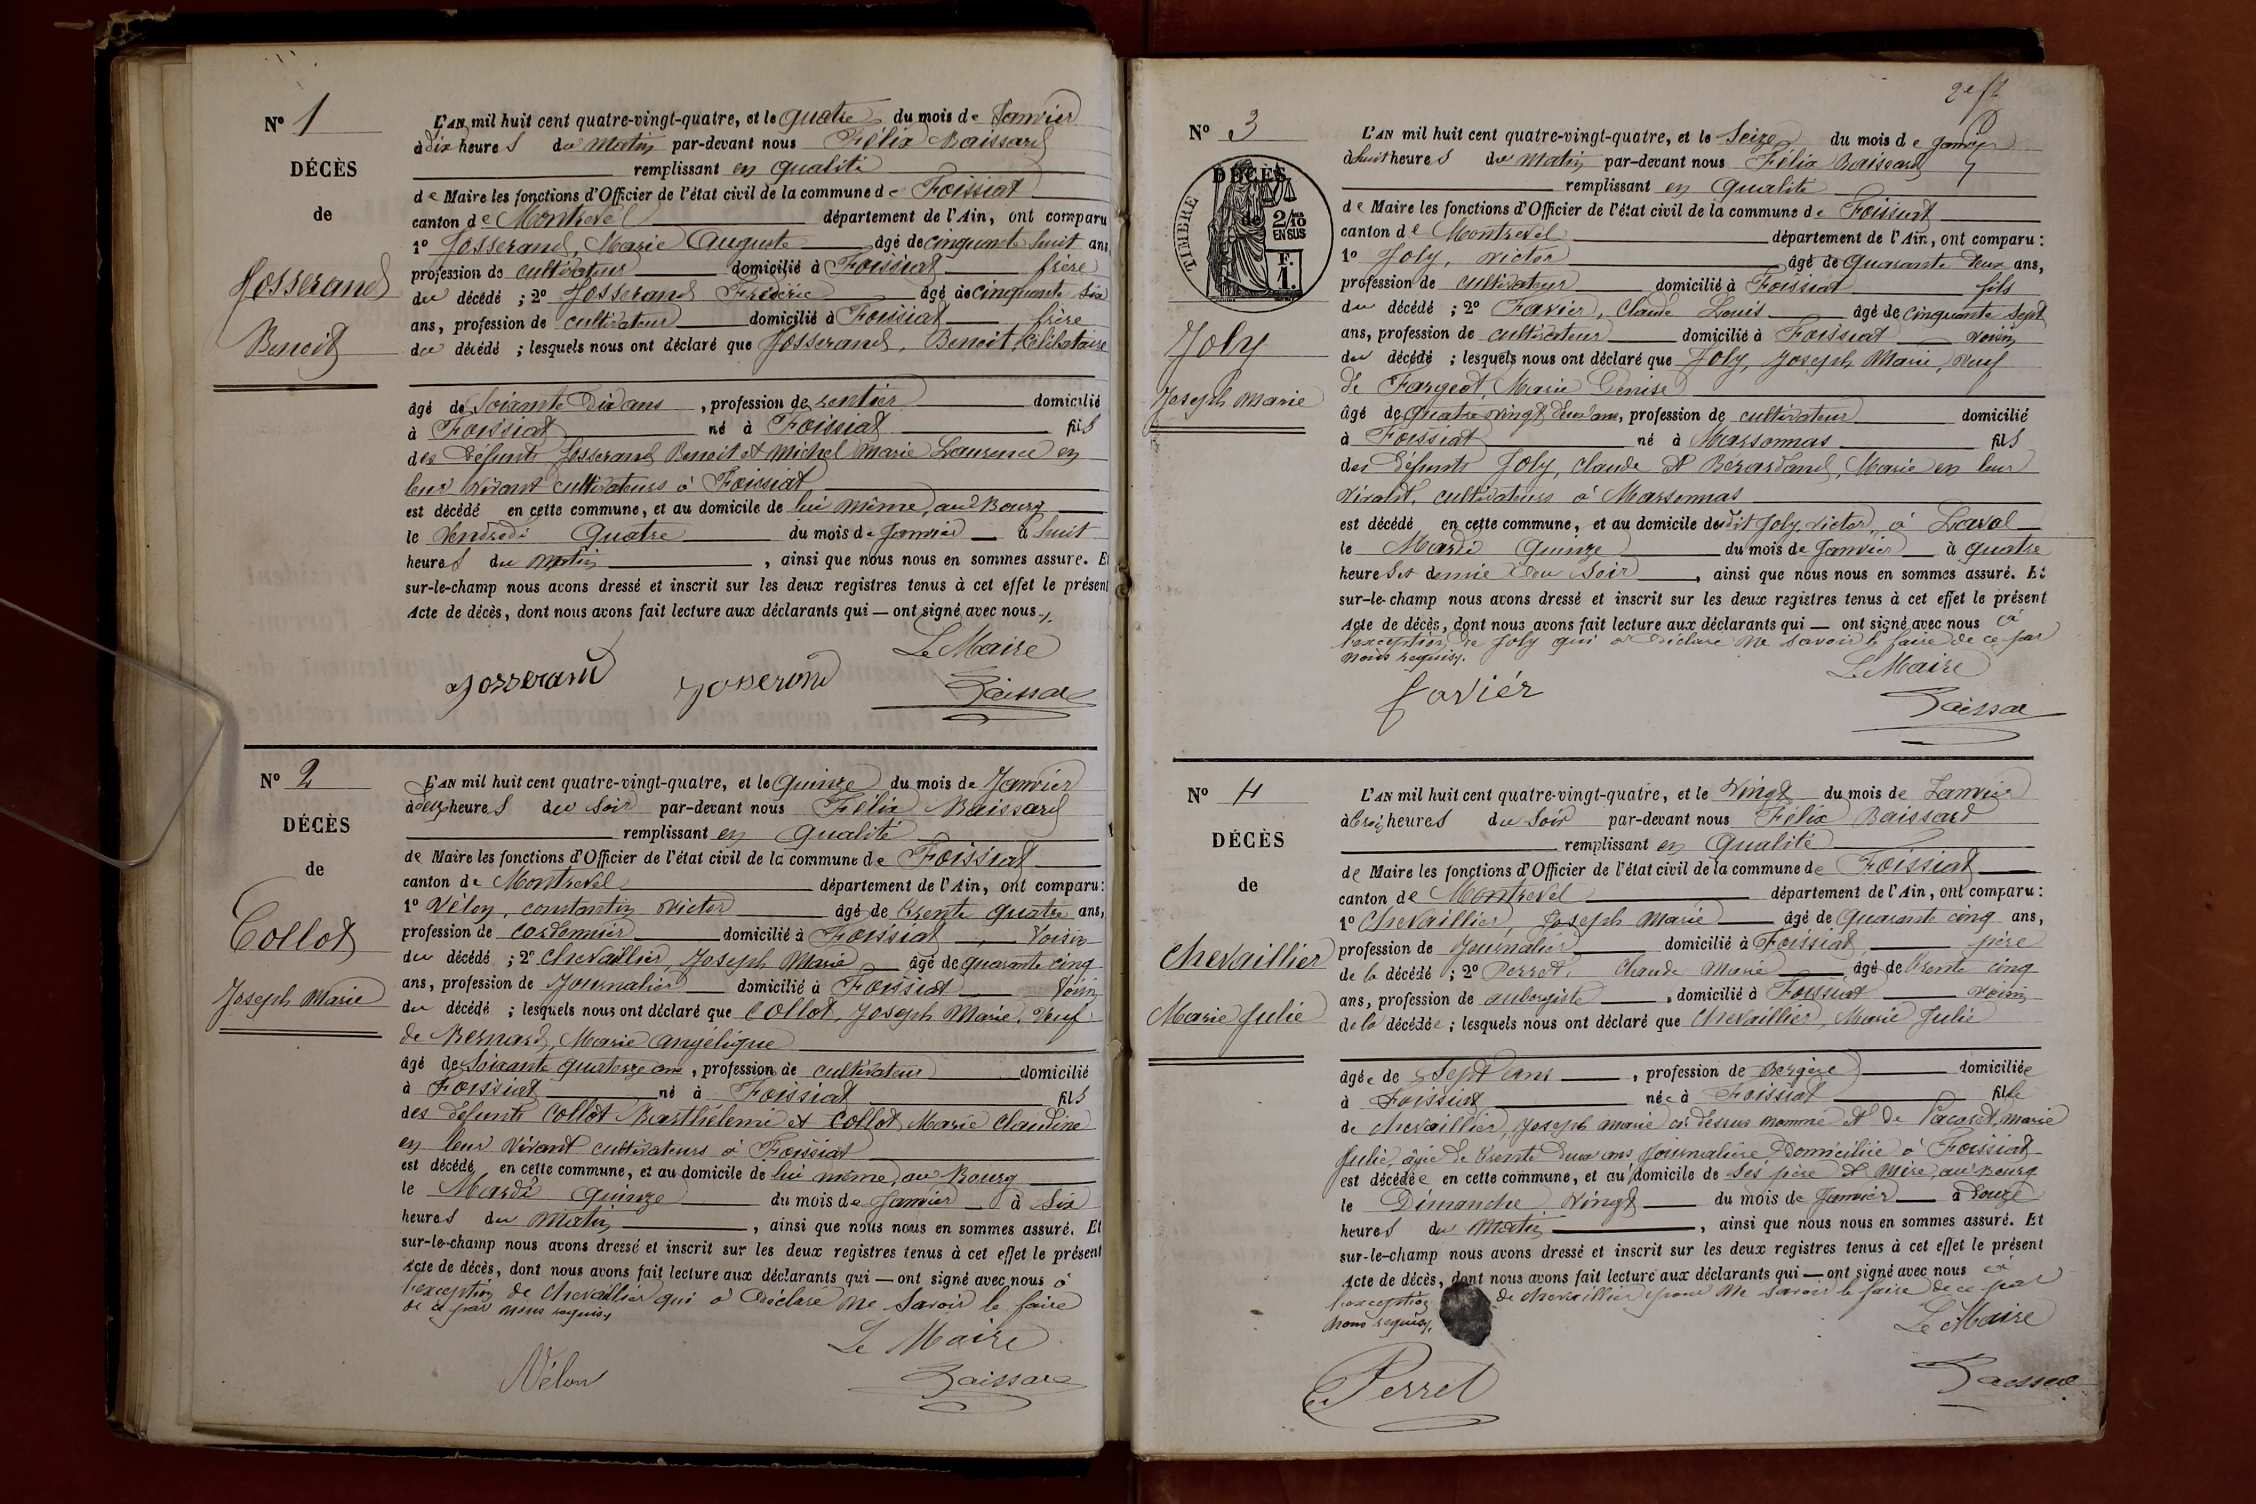 Nº 1
DÉCÈS
de
Josserand
Benoit
L'AN mil huit cent quatre-vingt-quatre, et le quatre du mois de Janvier
à dix heures du matin par-devant nous Félix Baissard
remplissant en qualité
de Maire les fonctions d'Officier de l'état civil de la commune de Foissiat
canton de Montrevel département de l'Ain, ont comparu
1º Josserand, Marie Auguste âgé de cinquante huit ans
profession de cultivateur domicilié à Foissiat frère
du décédé ; 2º Josserand Frédéric âgé de cinquante six
ans, profession de cultivateur domicilié à Foissiat frère
du décédé ; lesquels nous ont déclaré que Josserand, Benoit, célibataire
âgé de Soixante Dix ans, profession de rentier domicilié
à Foissiat né à Foissiat fils
des défunts Josserand Benoit et Michel Marie Laurence en
leur vivant cultivateurs à Foissiat
est décédé en cette commune, et au domicile de lui même, au Bourg
le Vendredi Quatre du mois de Janvier à huit
heures du matin, ainsi que nous nous en sommes assuré. Et
sur-le-champ nous avons dressé et inscrit sur les deux registres tenus à cet effet le présent
Acte de décès, dont nous avons fait lecture aux déclarants qui — ont signé avec nous
Le Maire
Josserand Josserand Baissard
Nº 2
DÉCÈS
de
Collot
Joseph Marie
L'AN mil huit cent quatre-vingt-quatre, et le quinze du mois de Janvier
à deux heures du soir par-devant nous Félix Baissard
remplissant en qualité
de Maire les fonctions d'Officier de l'état civil de la commune de Foissiat
canton de Montrevel département de l'Ain, ont comparu:
1º Vélon, constantin victor âgé de trente quatre ans,
profession de cordonnier domicilié à Foissiat, Voisin
du décédé ; 2º Chevaillier, Joseph Marie âgé de quarante cinq
ans, profession de Journalier domicilié à Foissiat Voisin
du décédé ; lesquels nous ont déclaré que Collot, Joseph Marie, Veuf
de Bernard, Marie angélique
âgé de Soixante quatorze ans, profession de cultivateur domicilié
à Foissiat né à Foissiat fils
des défunts Collot Barthélemi et Collot Marie Claudine
en leur vivant cultivateurs à Foissiat
est décédé en cette commune, et au domicile de lui même, au Bourg
le Mardi quinze du mois de Janvier à Six
heures du matin, ainsi que nous nous en sommes assuré. Et
sur-le-champ nous avons dressé et inscrit sur les deux registres tenus à cet effet le présent
Acte de décès, dont nous avons fait lecture aux déclarants qui — ont signé avec nous à
l'exception de Chevaillier qui a déclaré ne savoir le faire
de ce par nous requis
Le Maire
Vélon Baissard
Nº 3
DÉCÈS
de
TIMBRE
2/10 EN SUS
F. 1.
Joly
Joseph Marie
L'AN mil huit cent quatre-vingt-quatre, et le Seize du mois de Janvier
à huit heures du matin par-devant nous Félix Baissard
remplissant en qualité
de Maire les fonctions d'Officier de l'état civil de la commune de Foissiat
canton de Montrevel département de l'Ain, ont comparu:
1º Joly, victor âgé de quarante deux ans,
profession de cultivateur domicilié à Foissiat fils
du décédé ; 2º Favier, Claude Louis âgé de cinquante sept
ans, profession de cultivateur domicilié à Foissiat voisin
du décédé ; lesquels nous ont déclaré que Joly, Joseph Marie, Veuf
de Fargeot, Marie Denise
âgé de quatre vingt deux ans, profession de cultivateur domicilié
à Foissiat né à Marsonnas fils
des défunts Joly, Claude et Bérardand, Marie en leur
vivant, cultivateurs à Marsonnas
est décédé en cette commune, et au domicile du dit Joly victor, à Laval
le Mardi Quinze du mois de Janvier à quatre
heures et demie du soir, ainsi que nous nous en sommes assuré. Et
sur-le-champ nous avons dressé et inscrit sur les deux registres tenus à cet effet le présent
Acte de décès, dont nous avons fait lecture aux déclarants qui — ont signé avec nous à
l'exception de Joly qui a déclaré ne savoir le faire de ce par
nous requis.
Le Maire
favier Baissard
Nº 4
DÉCÈS
de
Chevaillier
Marie Julie
L'AN mil huit cent quatre-vingt-quatre, et le Vingt du mois de Janvier
à trois heures du soir par-devant nous Félix Baissard
remplissant en qualité
de Maire les fonctions d'Officier de l'état civil de la commune de Foissiat
canton de Montrevel département de l'Ain, ont comparu:
1º Chevaillier, Joseph Marie âgé de quarante cinq ans,
profession de Journalier domicilié à Foissiat, père
de la décédé ; 2º Perret, Claude Marie âgé de trente cinq
ans, profession de aubergiste, domicilié à Foissiat voisin
de la décédée ; lesquels nous ont déclaré que Chevaillier, Marie Julie
âgée de Sept ans, profession de Bergère domiciliée
à Foissiat née à Foissiat fille
de Chevaillier, Joseph Marie ci dessus nommé et de Pacaret, Marie
Julie, âgée de trente deux ans Journalière, domiciliée à Foissiat
est décédée en cette commune, et au domicile de ses père et mère, au Bourg
le Dimanche Vingt du mois de Janvier à Douze
heures du matin, ainsi que nous nous en sommes assuré. Et
sur-le-champ nous avons dressé et inscrit sur les deux registres tenus à cet effet le présent
Acte de décès, dont nous avons fait lecture aux déclarants qui — ont signé avec nous à
l'exception de Chevaillier pour ne savoir le faire de ce par
nous requis.
Le Maire
Perret Baissard